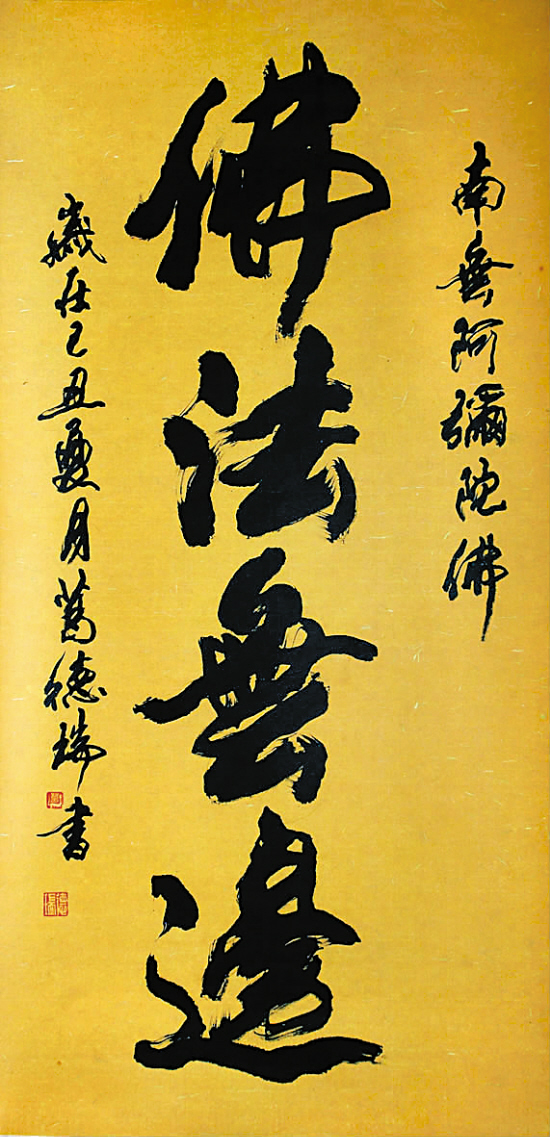 南無阿彌陀佛
佛法無邊
歲在己丑夏月葛德瑞書